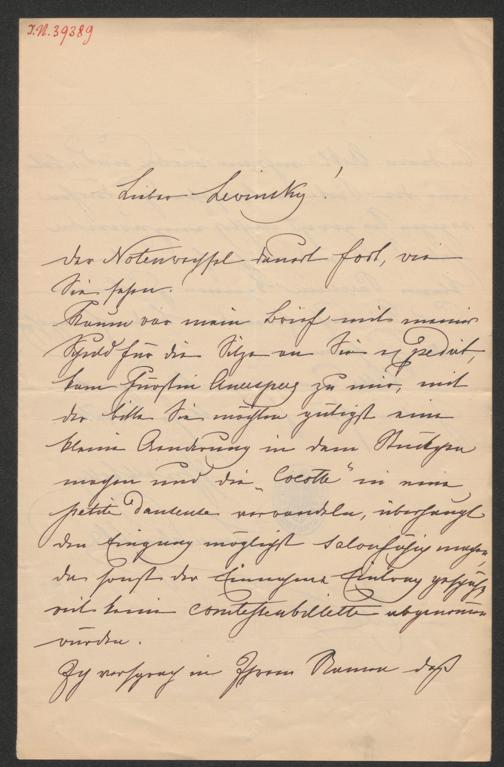 I.N. 39389
Lieber Lewinsky!
Der Notenwechsel dauert fort, wie
Sie sehen.
Kaum war mein Brief mit meiner
Schuld für die Sitze an Sie expedirt,
kam Fürstin Auersperg zu mir, mit
der Bitte Sie möchten gütigst eine
kleine Aenderung in dem Stückchen
machen und die „Cocotte" in eine
petite Danseuse verwandeln, überhaupt
den Eingang möglichst salonfähig machen,
da sonst der Einnahme Eintrag geschäh,
weil keine Comtessenbillette abgenommen
würden.
Ich versprach in Ihrem Namen daß